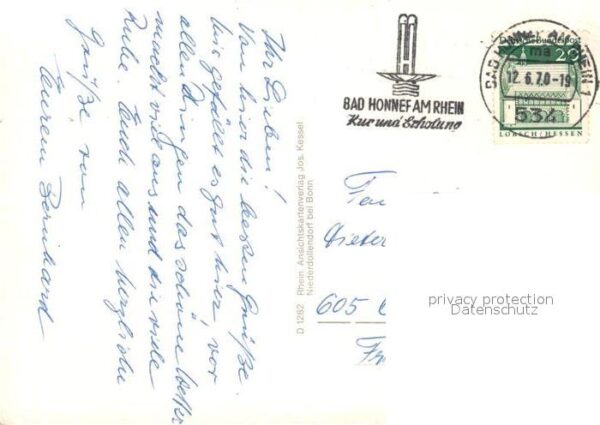 Ihr Lieben!
Von hier die besten Grüße.
Mir gefällt es gut hier, vor
allen Dingen das schöne Wetter
macht viel aus und die viele
Ruhe. Euch allen herzliche
Grüße von
Eurem Bernhard
D 1282 Rhein. Ansichtskartenverlag Jos. Kessel
Niederdollendorf bei Bonn
BAD HONNEF AM RHEIN
Kur und Erholung
BAD HONNEF AM RHEIN 1
ma
12.6.70-19
534
Deutsche Bundespost
20
LORSCH/HESSEN
Fam
Dieter
605
privacy protection
Datenschutz